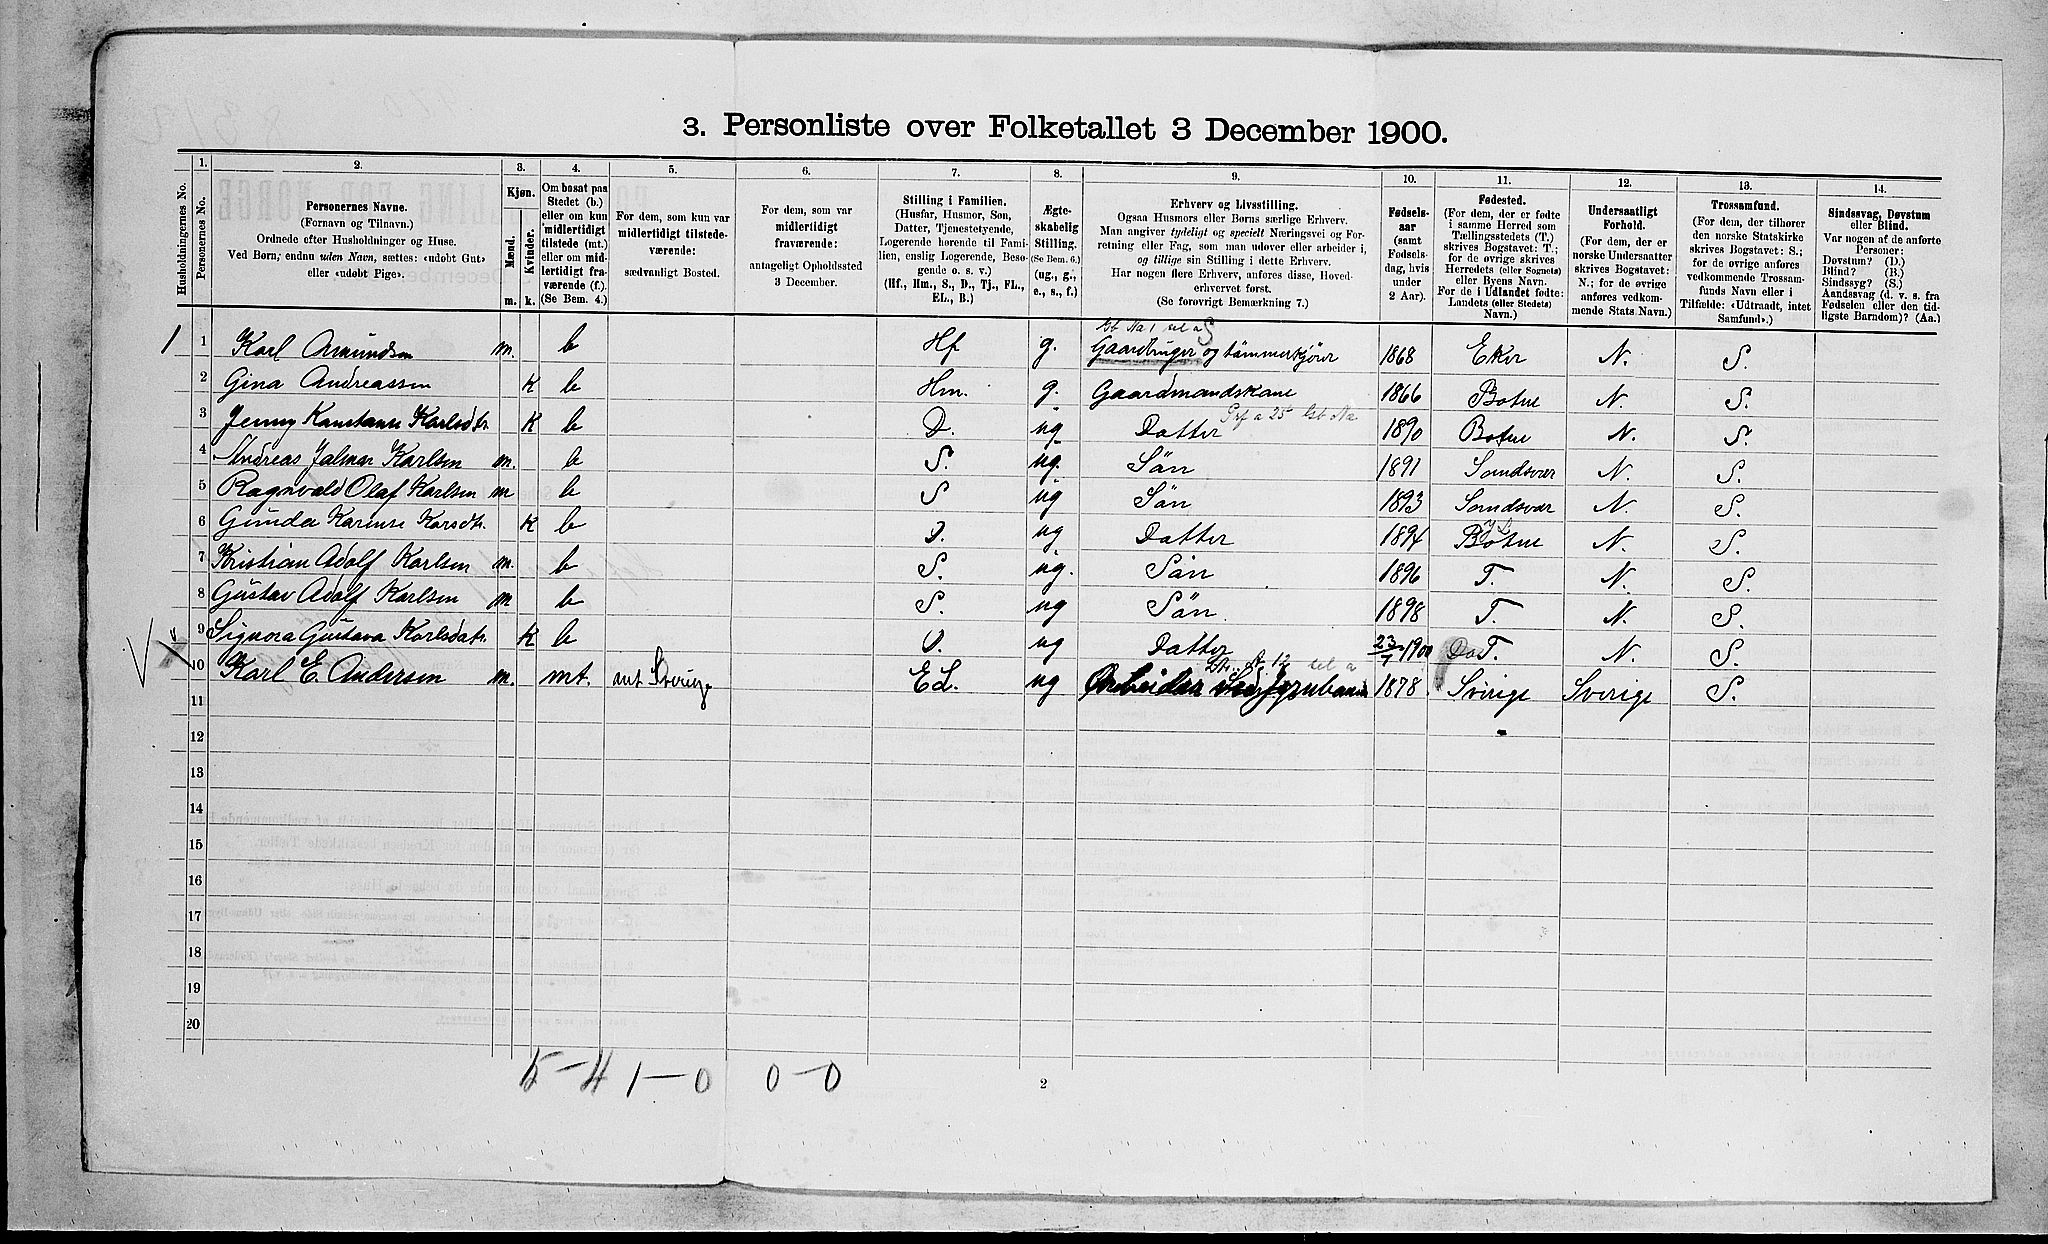 3. Personliste over Folketallet 3 December 1900.
Husholdningernes No.
1.
Personernes No.
2.
Personernes Navne.
(Fornavn og Tilnavn.)
Ordnede efter Husholdninger og Huse.
Ved Børn, endnu uden Navn, sættes: «udøbt Gut»
eller «udøbt Pige».
3.
Kjøn.
Mænd.
Kvinder.
m. k.
4.
Om bosat paa
Stedet (b.)
eller om kun
midlertidigt
tilstede (mt.)
eller om mid-
lertidigt fra-
værende (f.).
(Se Bem. 4.)
5.
For dem, som kun var
midlertidigt tilstede-
værende:
sædvanligt Bosted.
6.
For dem, som var
midlertidigt
fraværende:
antageligt Opholdssted
3 December.
7.
Stilling i Familien.
(Husfar, Husmor, Søn,
Datter, Tjenestetyende,
Logerende hørende til Fami-
lien, enslig Logerende, Besø-
gende o. s. v.)
(Hf., Hm., S., D., Tj., FL.,
EL., B.)
8.
Ægte-
skabelig
Stilling.
(Se Bem. 6.)
(ug., g.,
e., s., f.)
9.
Erhverv og Livsstilling.
Ogsaa Husmors eller Børns særlige Erhverv.
Man angiver tydeligt og specielt Næringsvei og For-
retning eller Fag, som man udøver eller arbeider i,
og tillige sin Stilling i dette Erhverv.
Har nogen flere Erhverv, anføres disse, Hoved-
erhvervet først.
(Se forøvrigt Bemærkning 7.)
10.
Fødsels-
aar
(samt
Fødsels-
dag, hvis
under
2 Aar).
11.
Fødested.
(For dem, der er fødte
i samme Herred som
Tællingsstedets (T.)
skrives Bogstavet: T.;
for de øvrige skrives
Herredets (eller Sognets)
eller Byens Navn.
For de i Udlandet fødte:
Landets (eller Stedets)
Navn.)
12.
Undersaatligt
Forhold.
(For dem, der er
norske Undersaatter
skrives Bogstavet:
N.; for de øvrige
anføres vedkom-
mende Stats Navn.)
13.
Trossamfund.
(For dem, der tilhører
den norske Statskirke
skrives Bogstavet: S.;
for de øvrige anføres
vedkommende Trossam-
funds Navn eller i
Tilfælde: «Udtraadt, intet
Samfund».)
14.
Sindssvag, Døvstum
eller Blind.
Var nogen af de anførte
Personer:
Døvstum? (D.)
Blind? (B.)
Sindssyg? (S.)
Aandssvag (d. v. s. fra
Fødselen eller den tid-
ligste Barndom)? (Aa.)
1 1 Karl Amundsen m. b Hf g. Gaardbruger og tømmerkjører 1868 Eker N. S.
2 Gina Andreassen K b Hm. g. Gaardmandskone 1866 Botne N. S.
3 Jenny Konstanse Karlsdtr. K b D. ug Datter 1890 Botne N. S.
4 Andreas Jalmar Karlsen m. b S. ug. Sön 1891 Sandsvær N. S.
5 Ragnvald Olaf Karlsen m b S ug Sön 1893 Sandsvær N. S.
6 Gunda Karense Karsdtr. K b D. ug Datter 1894 Botne N. S.
7 Kristian Adolf Karlsen m. b S. ug. Sön 1896 T. N. S.
8 Gustav Adolf Karlsen m b S. ug Sön 1898 T. N. S.
9 Signora Gustava Karlsdatr. K b D. ug Datter 23/7 1900 T. N. S.
10 Karl E. Andersen m. mt. Sverige EL. ug Arbeider ved Jernbanen 1878 Sverige Sverige S.
11
12
13
14
15
16
17
18
19
20
5-4 1-0 0-0
2